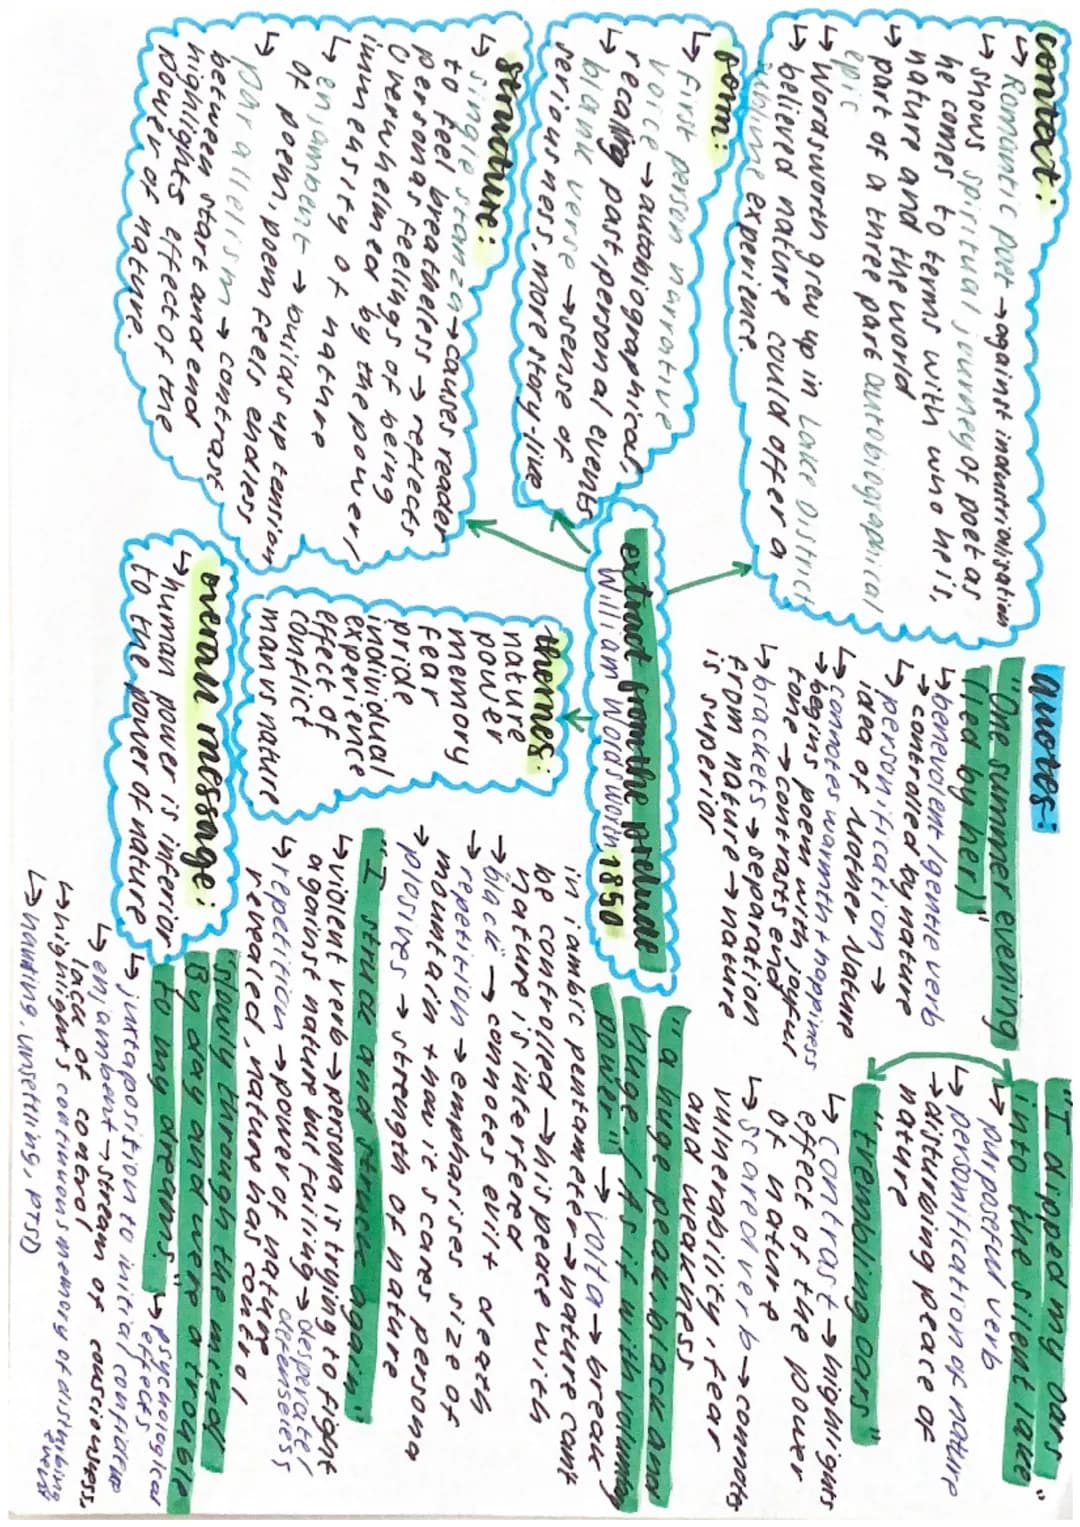 context:
↳ Romantic poet → against industrialisation
↳ shows spiritual journey of poet as
he comes to terms with who he is,
nature and the world
↳ part of a three part autobiographical
epic
↳ Wordsworth grew up in Lake District
↳ believed nature could offer a
sublime experience.
form:
↳ first person narrative
voice → autobiographical,
recalling past, personal events
↳ blank verse → sense of
seriousness, more story-like
structure:
↳ single stanza → causes reader
to feel breathless → reflects
personas feelings of being
overwhelmed by the power/
immensity of nature
↳ enjambent → builds up tension
of poem, poem feels endless
↳ parallelism → contrast
between start and end
highlights effect of the
power of nature.
extract from the prelude
William Wordsworth, 1850
themes:
nature
power
memory
fear
pride
individual
experience
effect of
conflict
man vs nature
overall message:
↳ human power is inferior
to the power of nature
quotes:
"One summer evening
(led by her)"
↳ benevolent/gentle verb
→ controlled by nature
↳ personification →
idea of Mother Nature
↳ connotes warmth + happiness
→ begins poem with joyful
tone → contrasts end
↳ brackets → separation
from nature → nature
is superior
"I dipped my oars
into the silent lake"
↳ purposeful verb
↳ personification of nature
→ disturbing peace of
nature
"trembling oars"
↳ contrast → highlights
effect of the power
of nature
↳ scared verb → connotes
vunerability, fear
and weakness
"a huge peak, black and
huge / As if with voluntary
power" → volta → break
in iambic pentameter → nature cant
be controlled → his peace with
nature is interfered
→ "black" → connotes evil + death
→ repetition → emphasises size of
mountain + how it scares persona
→ plosives → strength of nature
"I struck and struck again"
↳ violent verb → persona is trying to fight
against nature but failing → desperate/
defenseless
↳ repetition → power of nature
revealed, nature has control
"slowly through the mind
By day and were a trouble
to my dreams." ↳ psychological
effects
↳ juxtaposition to initial confidence
↳ enjambent → stream of consciousness,
lack of control
↳ highlights continuous memory of disturbing
event
↳ haunting, unsettling, PTSD